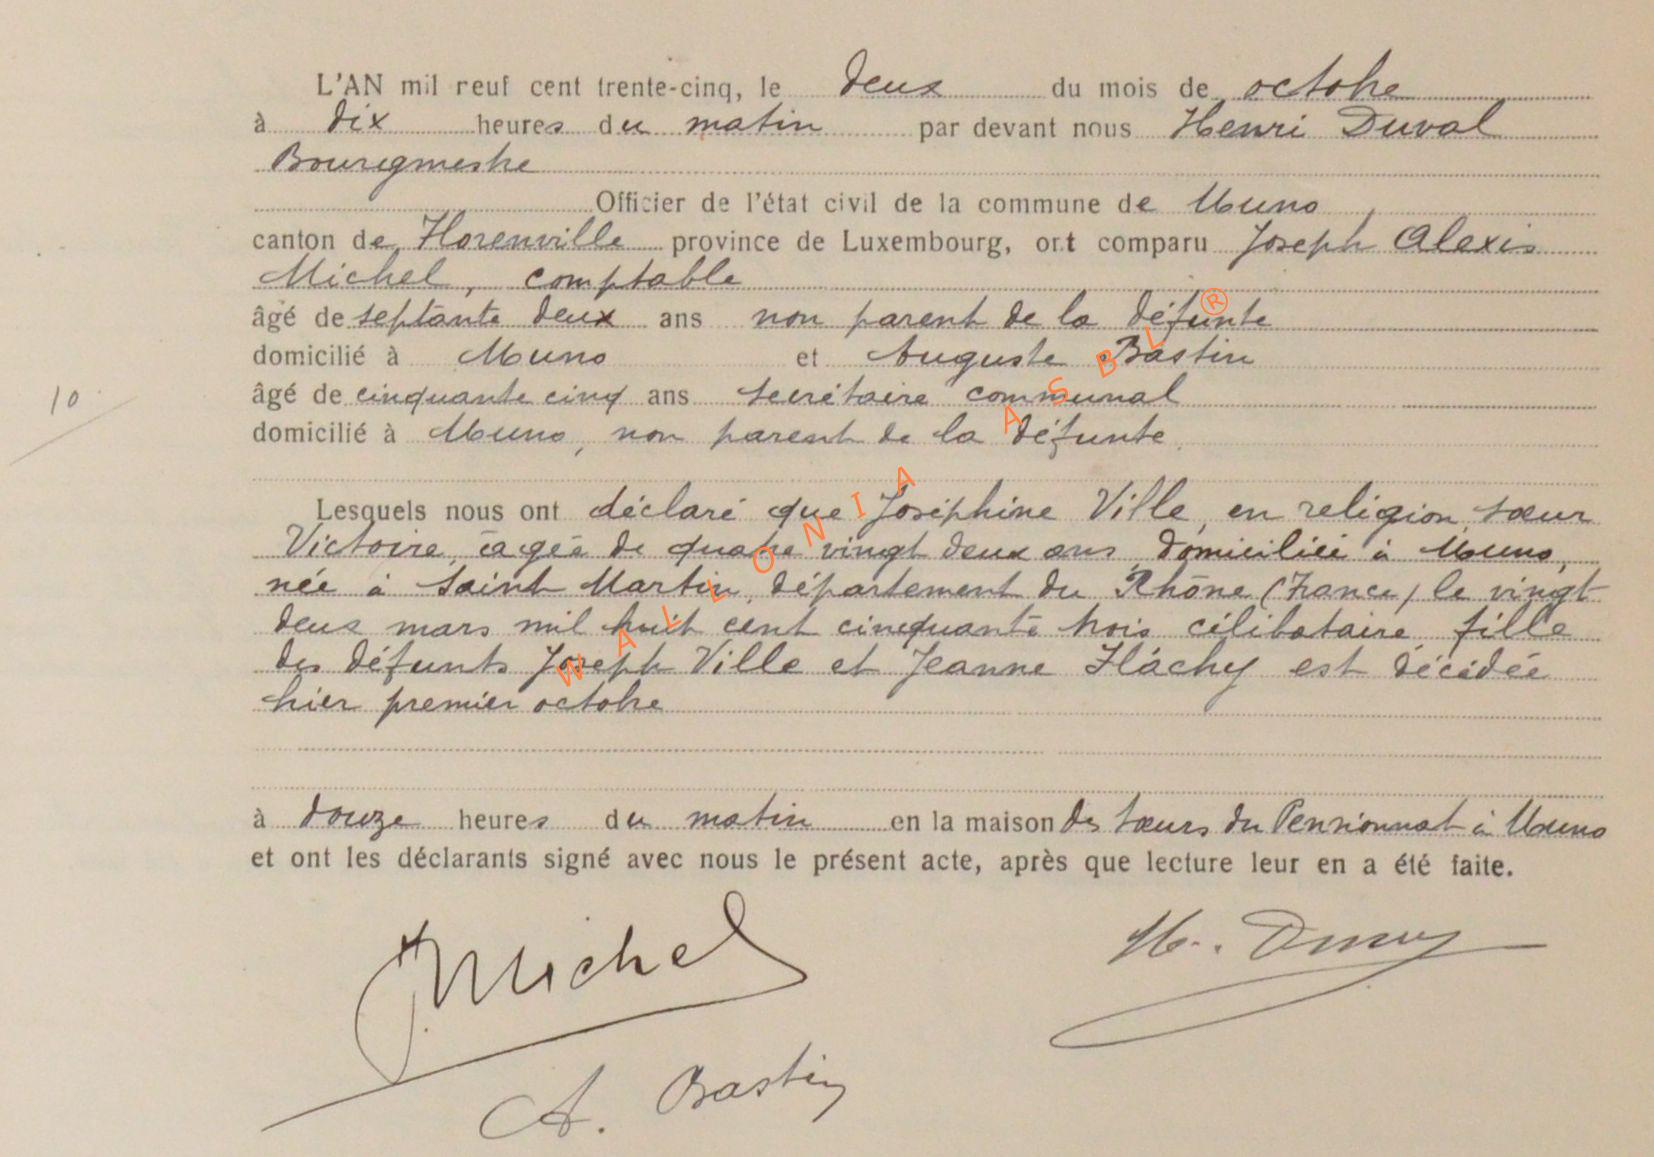 L'AN mil neuf cent trente-cinq, le deux du mois de octobre
à dix heures du matin par devant nous Henri Duval
Bourgmestre
Officier de l'état civil de la commune de Muno
canton de Florenville province de Luxembourg, ont comparu Joseph Alexis
Michel, comptable
âgé de septante deux ans non parent de la défunte
domicilié à Muno et Auguste Bastin
âgé de cinquante cinq ans secrétaire communal
domicilié à Muno, non parent de la défunte.
10
Lesquels nous ont déclaré que Joséphine Ville, en religion sœur
Victoire, âgée de quatre vingt deux ans domiciliée à Muno,
née à Saint Martin, département du Rhône (France) le vingt
deux mars mil huit cent cinquante trois célibataire fille
des défunts Joseph Ville et Jeanne Flachy est décédée
hier premier octobre
à douze heures du matin en la maison des sœurs du Pensionnat à Muno
et ont les déclarants signé avec nous le présent acte, après que lecture leur en a été faite.
J. Michel
A. Bastin
WALLONIA ASBL ®